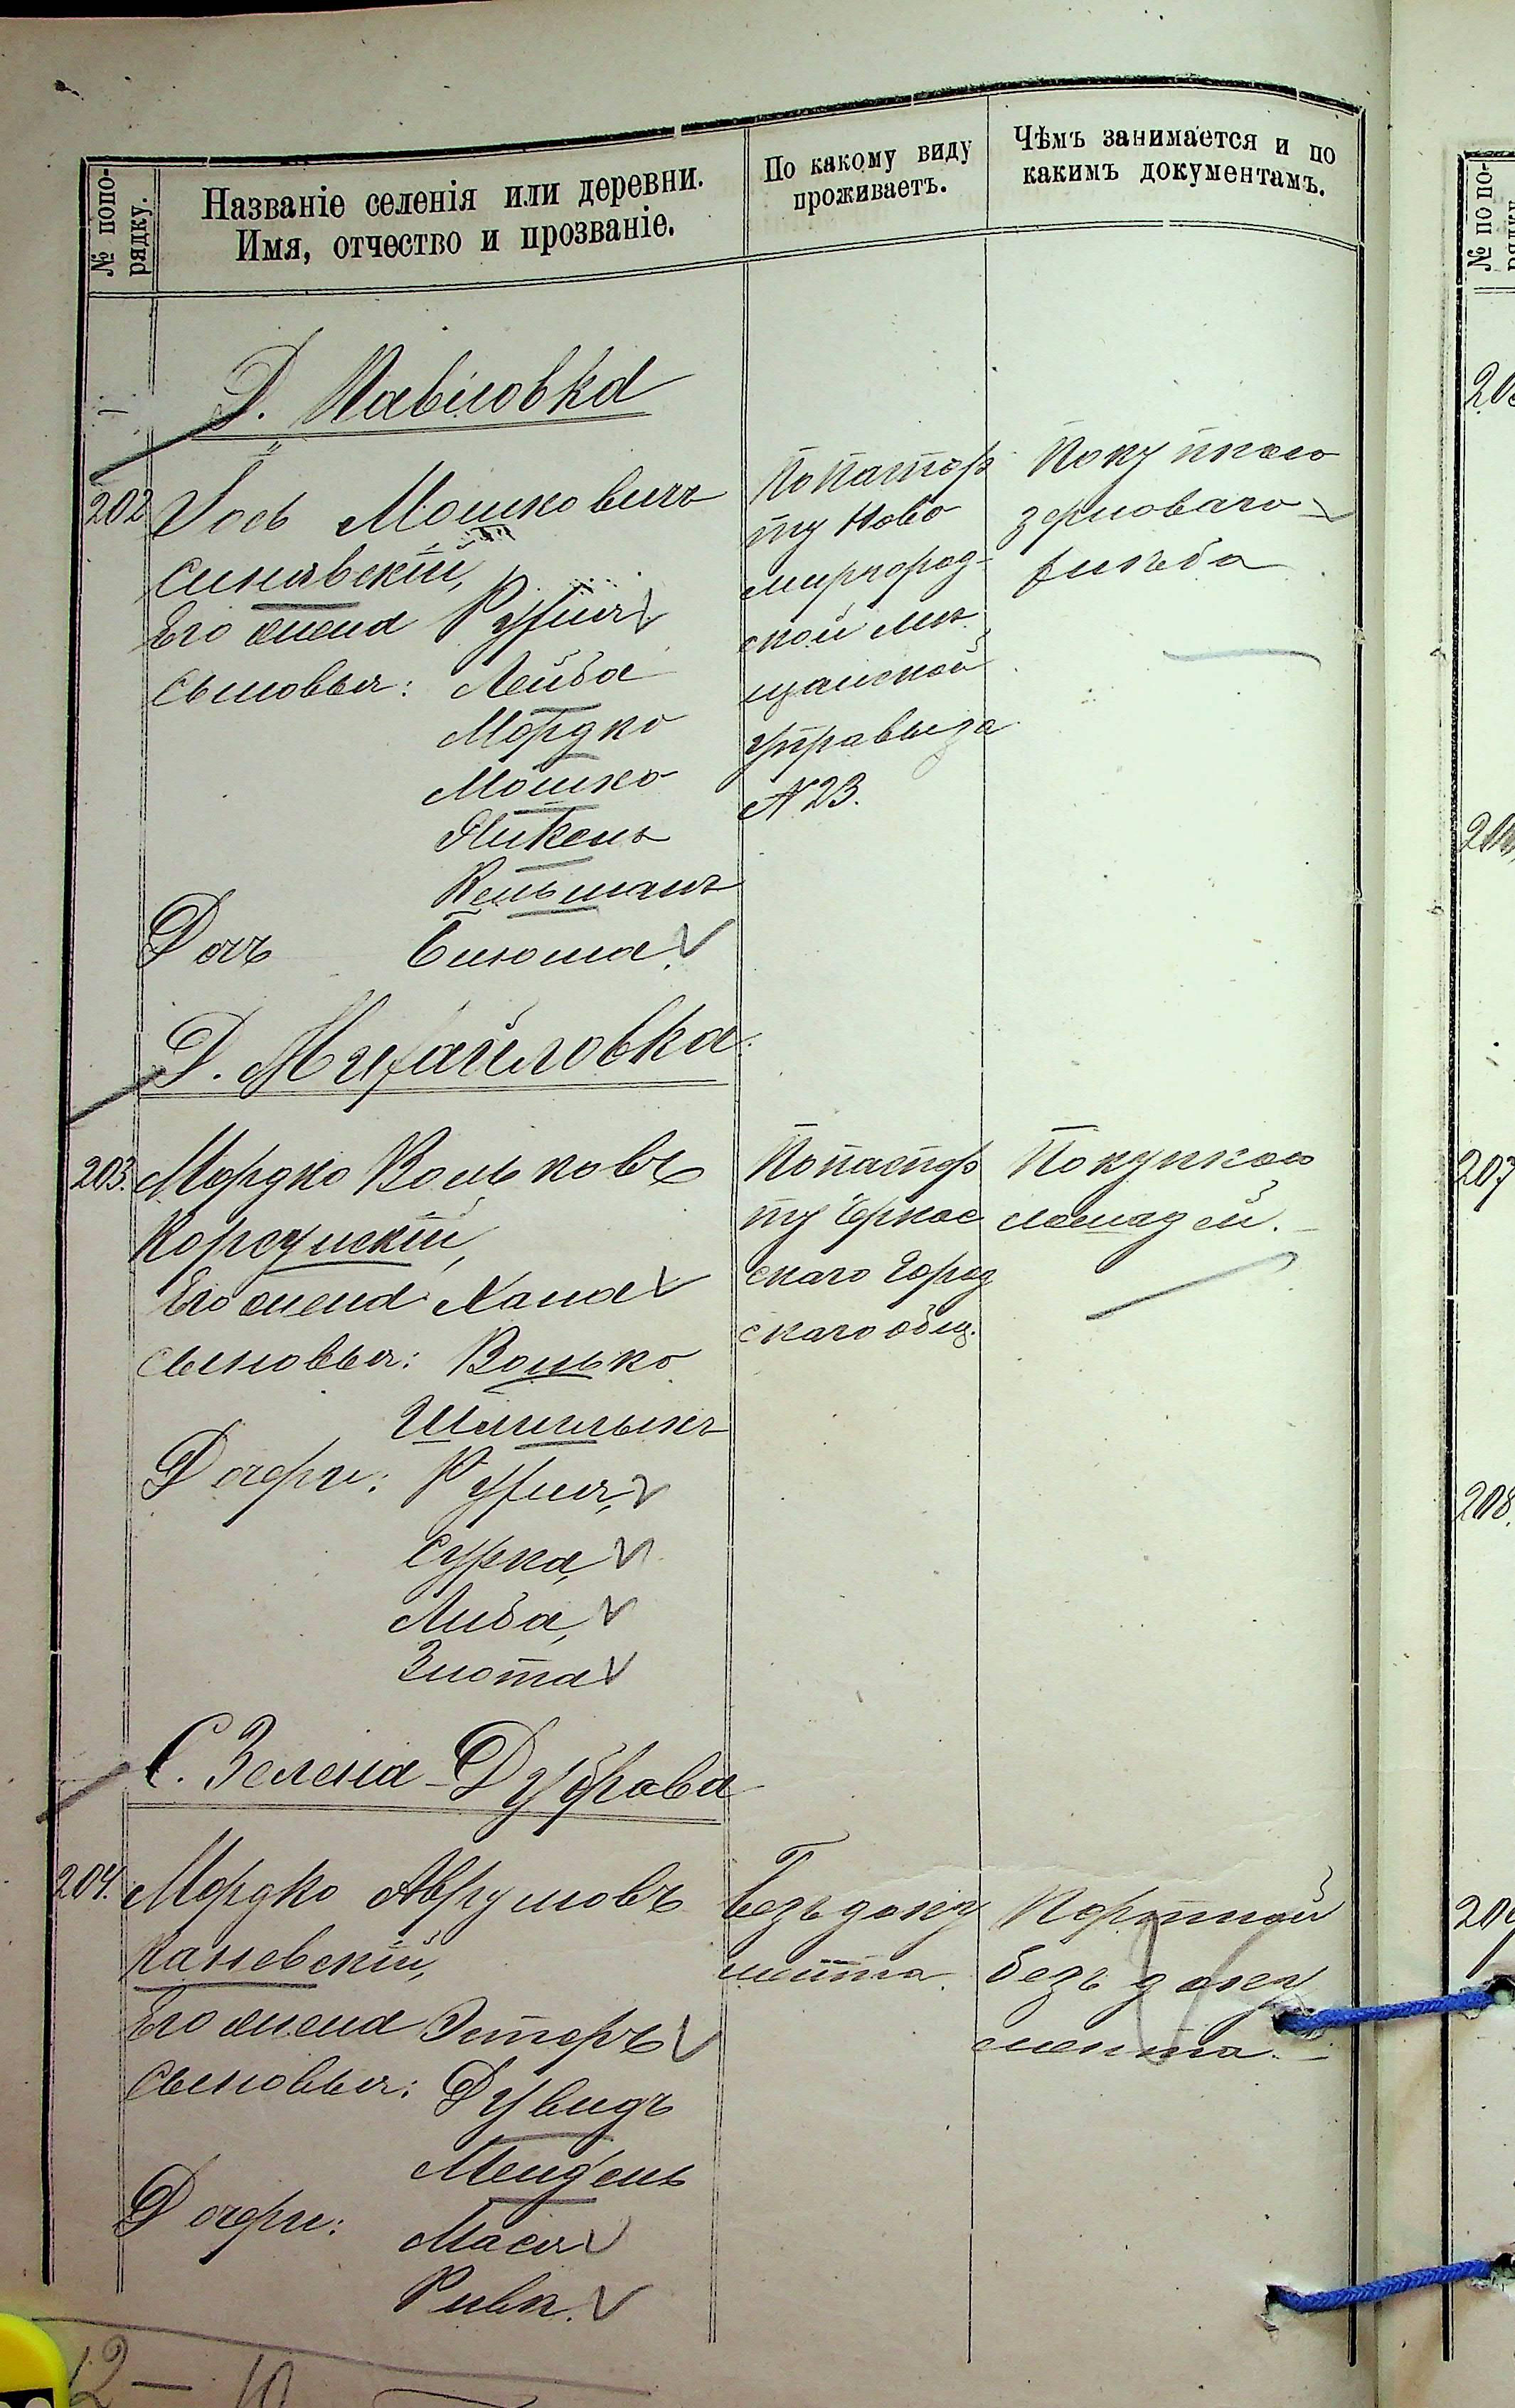 № попо-
рядку.
Названіе селенія или деревни.
Имя, отчество и прозваніе.
По какому виду
проживаетъ.
Чѣмъ занимается и по
какимъ документамъ.
Д. Павловка
202
Іось Мошковичъ
Синявскій,
Его жена Рухля
Сыновья: Лейба
Мордко
Мошко
Кельманъ
Дочь Блюма
По паспор
ту Ново
миргород-
ской мѣ
щанской
управы за
N 23.
Покупкою
зерноваго
хлѣба
Д. Михайловка
203.
Мордко Вольковъ
Корсунскій,
Его жена Хана
Сыновья: Волько
Шмилыкъ
Дочери: Рухля,
Сурка,
Либа,
Злота
По паспор
ту Черкас
скаго Город
скаго общ.
Покупкою
лошадей.
С. Зелена-Дуброва
204.
Мордко Аврумовъ
Каневскій,
Его жена Эстеръ
Сыновья: Дувидъ
Мендель
Дочери: Мася
Ривк.
Безъ доку
мента.
Портной
безъ доку
мента.
12 — 10
№ по по-
207
208.